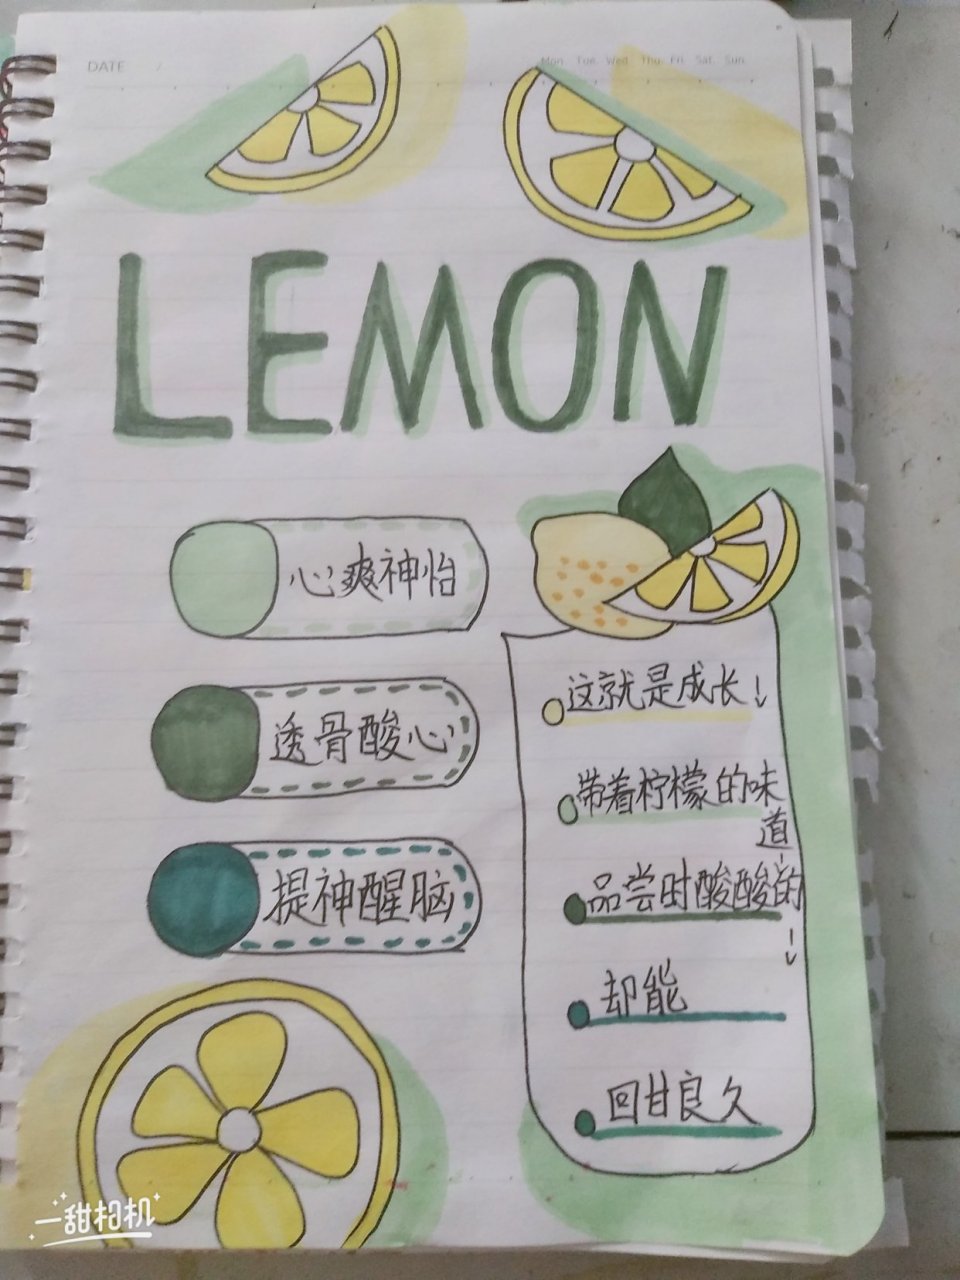 DATE
Mon. Tue. Wed. Thu. Fri. Sat. Sun.
LEMON
心爽神怡
透骨酸心
提神醒脑
这就是成长！
带着柠檬的味
道！
品尝时酸酸的
！
却能
回甘良久
一甜相机